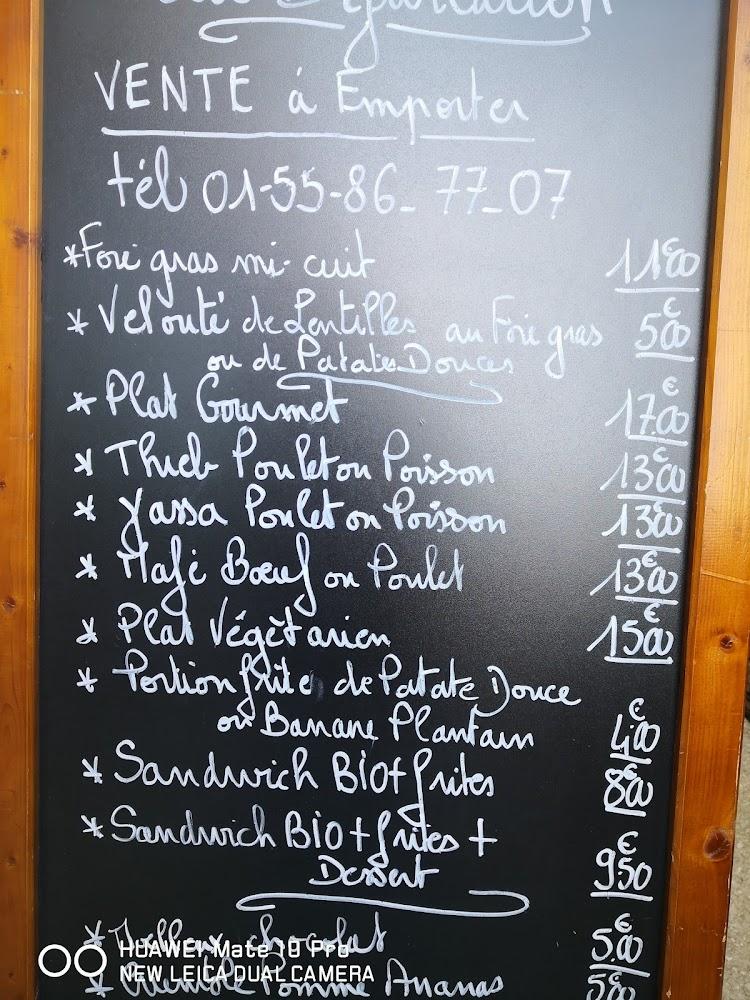 VENTE à Emporter
tél 01-55-86-77-07
*Foie gras mi-cuit 11€00
* Velouté de Lentilles au Foie gras 5€00
ou de Patate Douces
* Plat Gourmet 17€00
* Thieb Poulet ou Poisson 13€00
* Yassa Poulet ou Poisson 13€00
* Mafé Boeuf ou Poulet 13€00
* Plat Végétarien 15€00
* Portion frite de Patate Douce
ou Banane Plantain 4€00
* Sandwich BIO+frites 8€00
* Sandwich BIO+frites+
Dessert 9€50
* chocolat 5€00
Pomme Ananas 5€00
HUAWEI Mate 10 Pro
NEW LEICA DUAL CAMERA